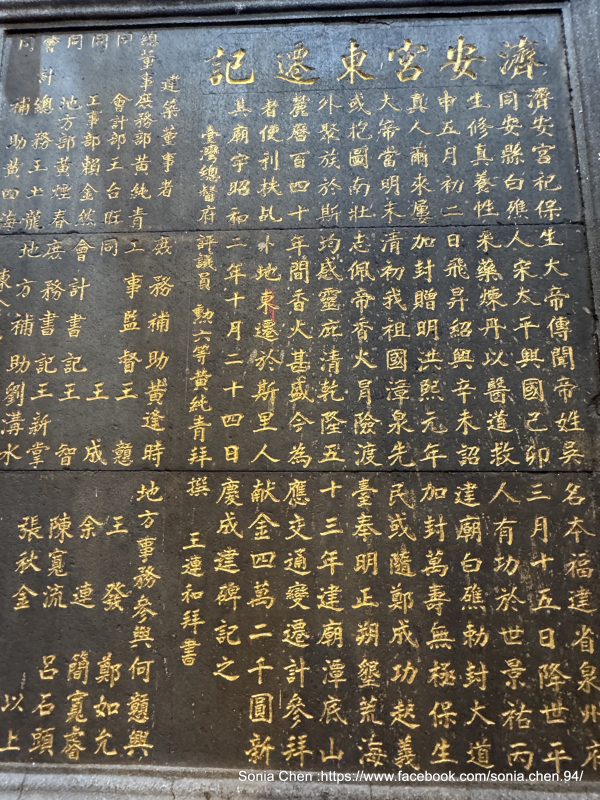 濟安宮東遷記
濟安宮祀保生大帝傳聞帝姓吳名夲福建省泉州府
同安縣白礁人宋太平興國己卯三月十五日降世平
生修真養性采藥煉丹以醫道救人有功於世景祐丙
申五月初二日飛昇紹興辛未詔建廟白礁勅封大道
真人爾來屢加封贈明洪熙元年加封萬壽無極保生
大帝當明末清初我祖國漳泉先民或隨鄭成功起義
或抱圖南壯志佩帝香火冒險渡臺奉明正朔墾荒海
外聚族於斯均感靈庇清乾隆五十三年建廟潭底山
麓曆百四十年間香火甚盛今為應交通變遷計參拜
者便利扶乩卜地東遷於斯里人献金四萬二千圓新
其廟宇昭和二年十月二十四日慶成建碑記之
臺灣總督府評議員 勲六等黃純青拜撰 王連和拜書
建築董事者
總董事庶務部黃純青 庶務補助黃逢時 地方事務參與何戇興
同 會計部王台旺 工事監督王戇 王發 鄭如允
同 工事部賴金然 同 王成 余連 簡寬睿
同 地方部黃煙春 會計書記王智 陳寬流 呂石頭
會計總務王土龍 庶務書記王新掌 張秋金 以上
同 補助黃四海 地方補助劉溝水
Sonia Chen :https://www.facebook.com/sonia.chen.94/